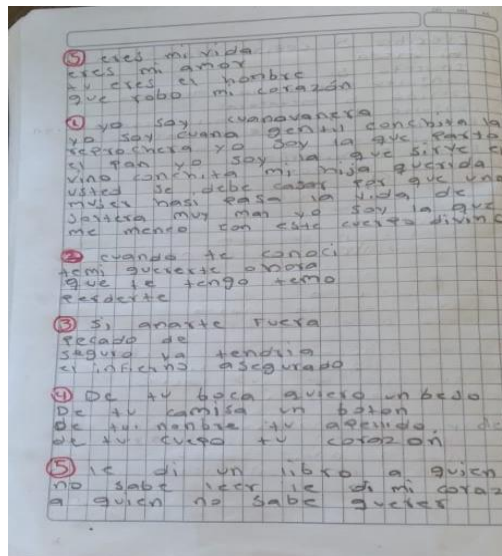 ⑤ eres mi vida
eres mi amor
tu eres el hombre
que robo mi corazón
① yo soy cuanavanera
yo soy cuana gentil conchita la
reprochera yo soy la que parto
el pan yo soy la que sirve e
vino conchita mi hija querida
usted se debe casar por que una
muger hasi pasa la vida de
soltera muy mas yo soy la que
me meneo con este cuerpo divin
② cuando te conoci
temi quererte ahora
que te tengo temo
perderte
③ si amarte fuera
pecado de
seguro ya tendria
el infierno asegurado
④ De tu boca quiero un beso
De tu camisa un boton
de tu nombre tu apellido de
de tu cuepo tu corazon
⑤ le di un libro a quien
no sabe leer le di mi coraz
a quien no sabe querer